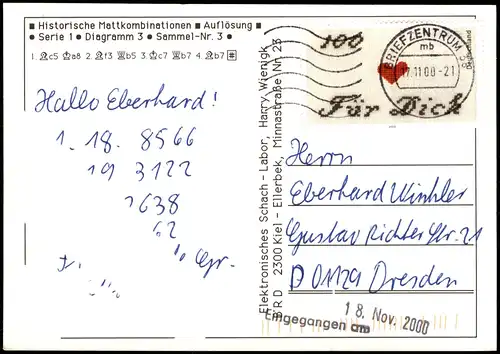 ■ Historische Mattkombinationen ■ Auflösung ■
● Serie 1 ● Diagramm 3 ● Sammel-Nr. 3 ●
1. ♗c5 ♔a8 2. ♖f3 ♜b5 3. ♖c7 ♜b7 4. ♖b7 #
Hallo Eberhard!
1. 18. 8566
19 3122
1638
62
Gr.
Elektronisches Schach-Labor, Harry Wienigk
BRD 2300 Kiel-Ellerbek, Minnastraße Nr. 23
100
Für Dich
Deutschland
BRIEFZENTRUM 38
mb
17.11.00-21
Herrn
Eberhard Winkler
Gustav Richter Str. 21
D 01129 Dresden
18. Nov. 2000
Eingegangen am